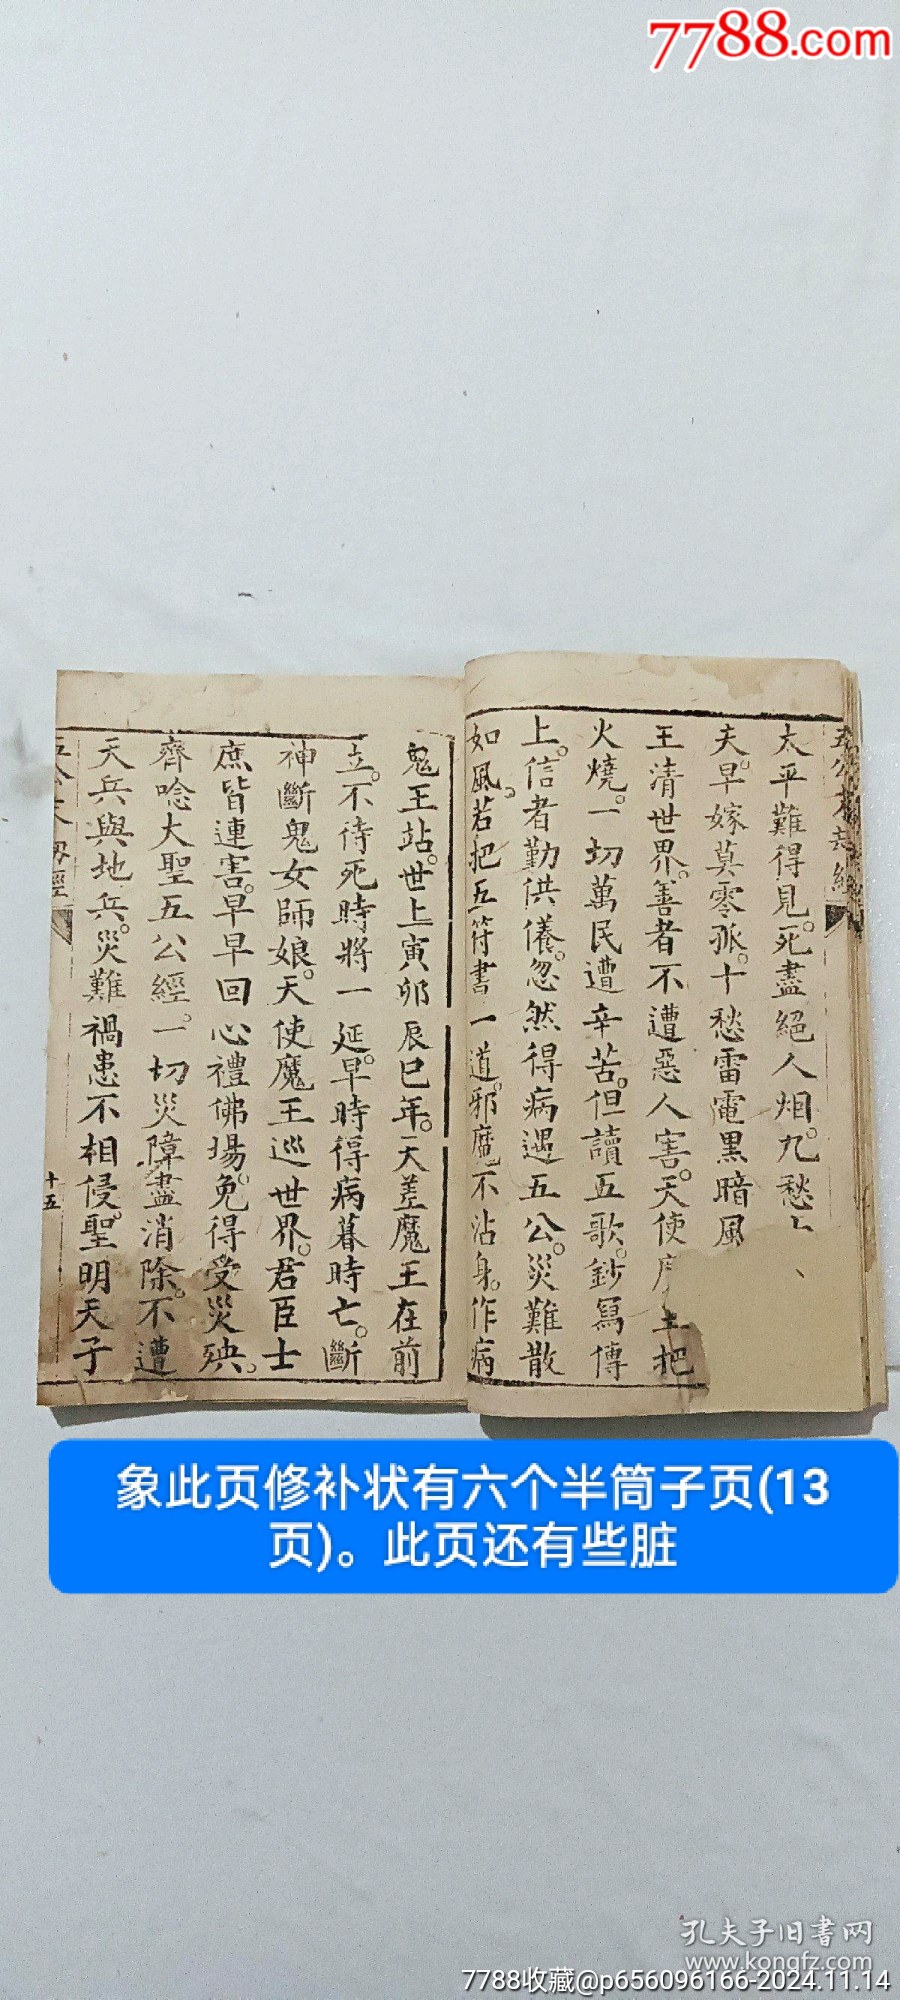 7788.com
五公末劫經
太平難得見。死盡絕人烟。九愁上
夫。早嫁莫零孤。十愁雷電黑暗風
王清世界。善者不遭惡人害。天使王把
火燒。一切萬民遭辛苦。但讀五歌。鈔寫傳
上。信者勤供養。忽然得病遇五公。災難散
如風。若把五符書一道。邪魔不沾身。作病
鬼王站。世上寅卯辰巳年。天差魔王在前
立。不待死時將一延。早時得病暮時亡。斷
神斷鬼女師娘。天使魔王巡世界。君臣士
庶皆連害。早早回心禮佛場。免得受災殃。
齊唸大聖五公經。一切災障盡消除。不遭
天兵與地兵。災難禍患不相侵。聖明天子
五公末劫經
十五
象此页修补状有六个半筒子页(13
页)。此页还有些脏
孔夫子旧书网
www.kongfz.com
7788收藏@p656096166-2024.11.14